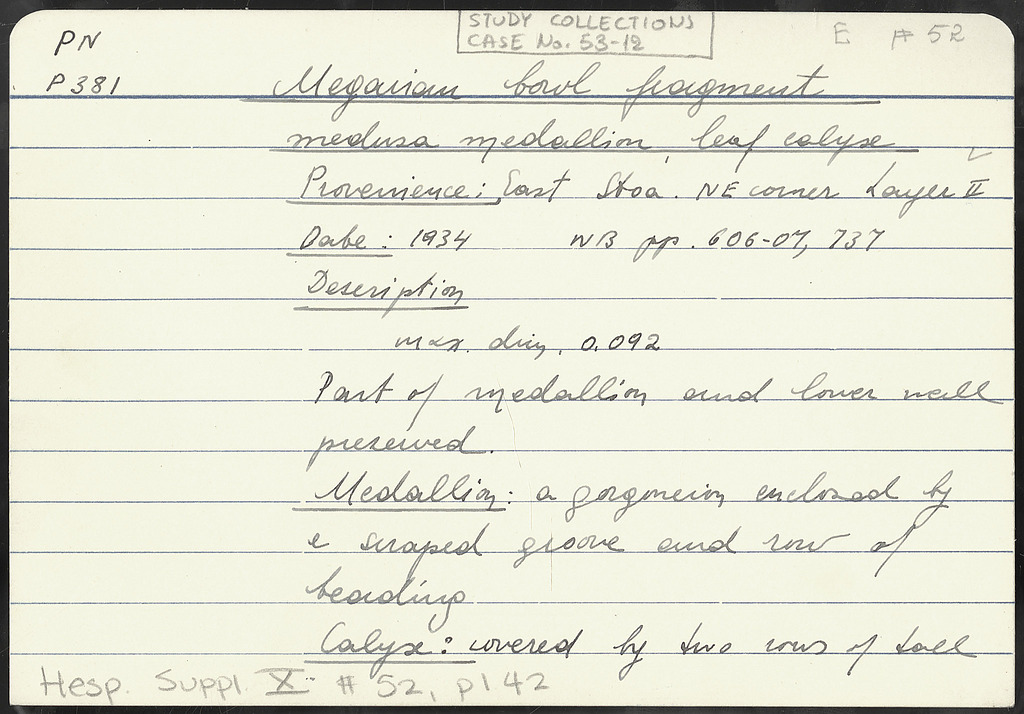 STUDY COLLECTIONS
CASE No. 53-12
E # 52
PN
P381
Megarian bowl fragment
medusa medallion, leaf calyx
Provenience: East Stoa. NE corner Layer II
Date: 1934 NB pp. 606-07, 737
Description
max. dim. 0.092
Part of medallion and lower wall
preserved.
Medallion: a gorgoneion enclosed by
a scraped groove and row of
beading
Calyx: covered by two rows of tall
Hesp. Suppl. X # 52, p142